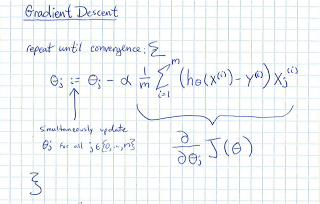 Gradient Descent
repeat until convergence: {
θj := θj - α 1/m Σ_{i=1}^{m} (hθ(x⁽ⁱ⁾) - y⁽ⁱ⁾) xj⁽ⁱ⁾
simultaneously update
θj for all j ∈ {0, ..., n}
∂/∂θj J(θ)
}